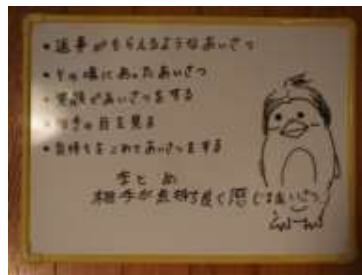 ・返事がもらえるようなあいさつ
・その場にあったあいさつ
・笑顔であいさつをする
・相手の目を見る
・気持ちをこめてあいさつをする
まとめ
相手が気持ち良く感じるあいさつ